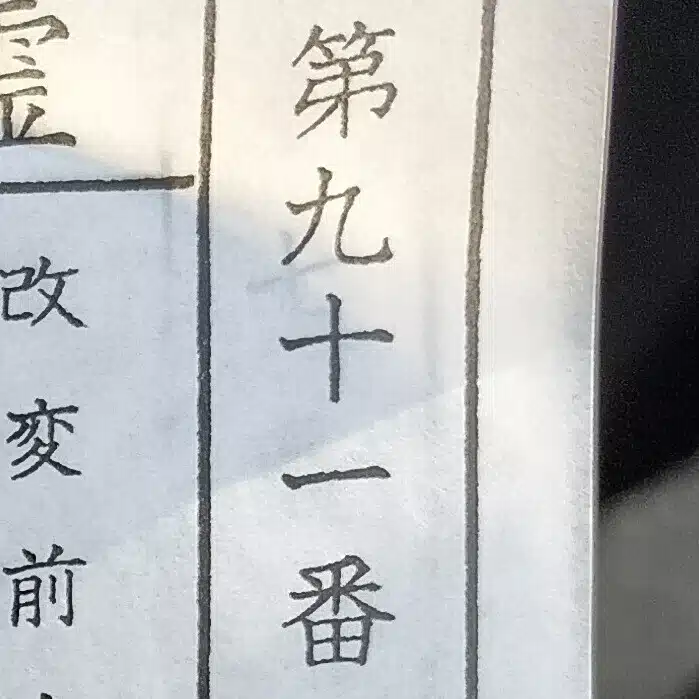 第九十一番
改変前